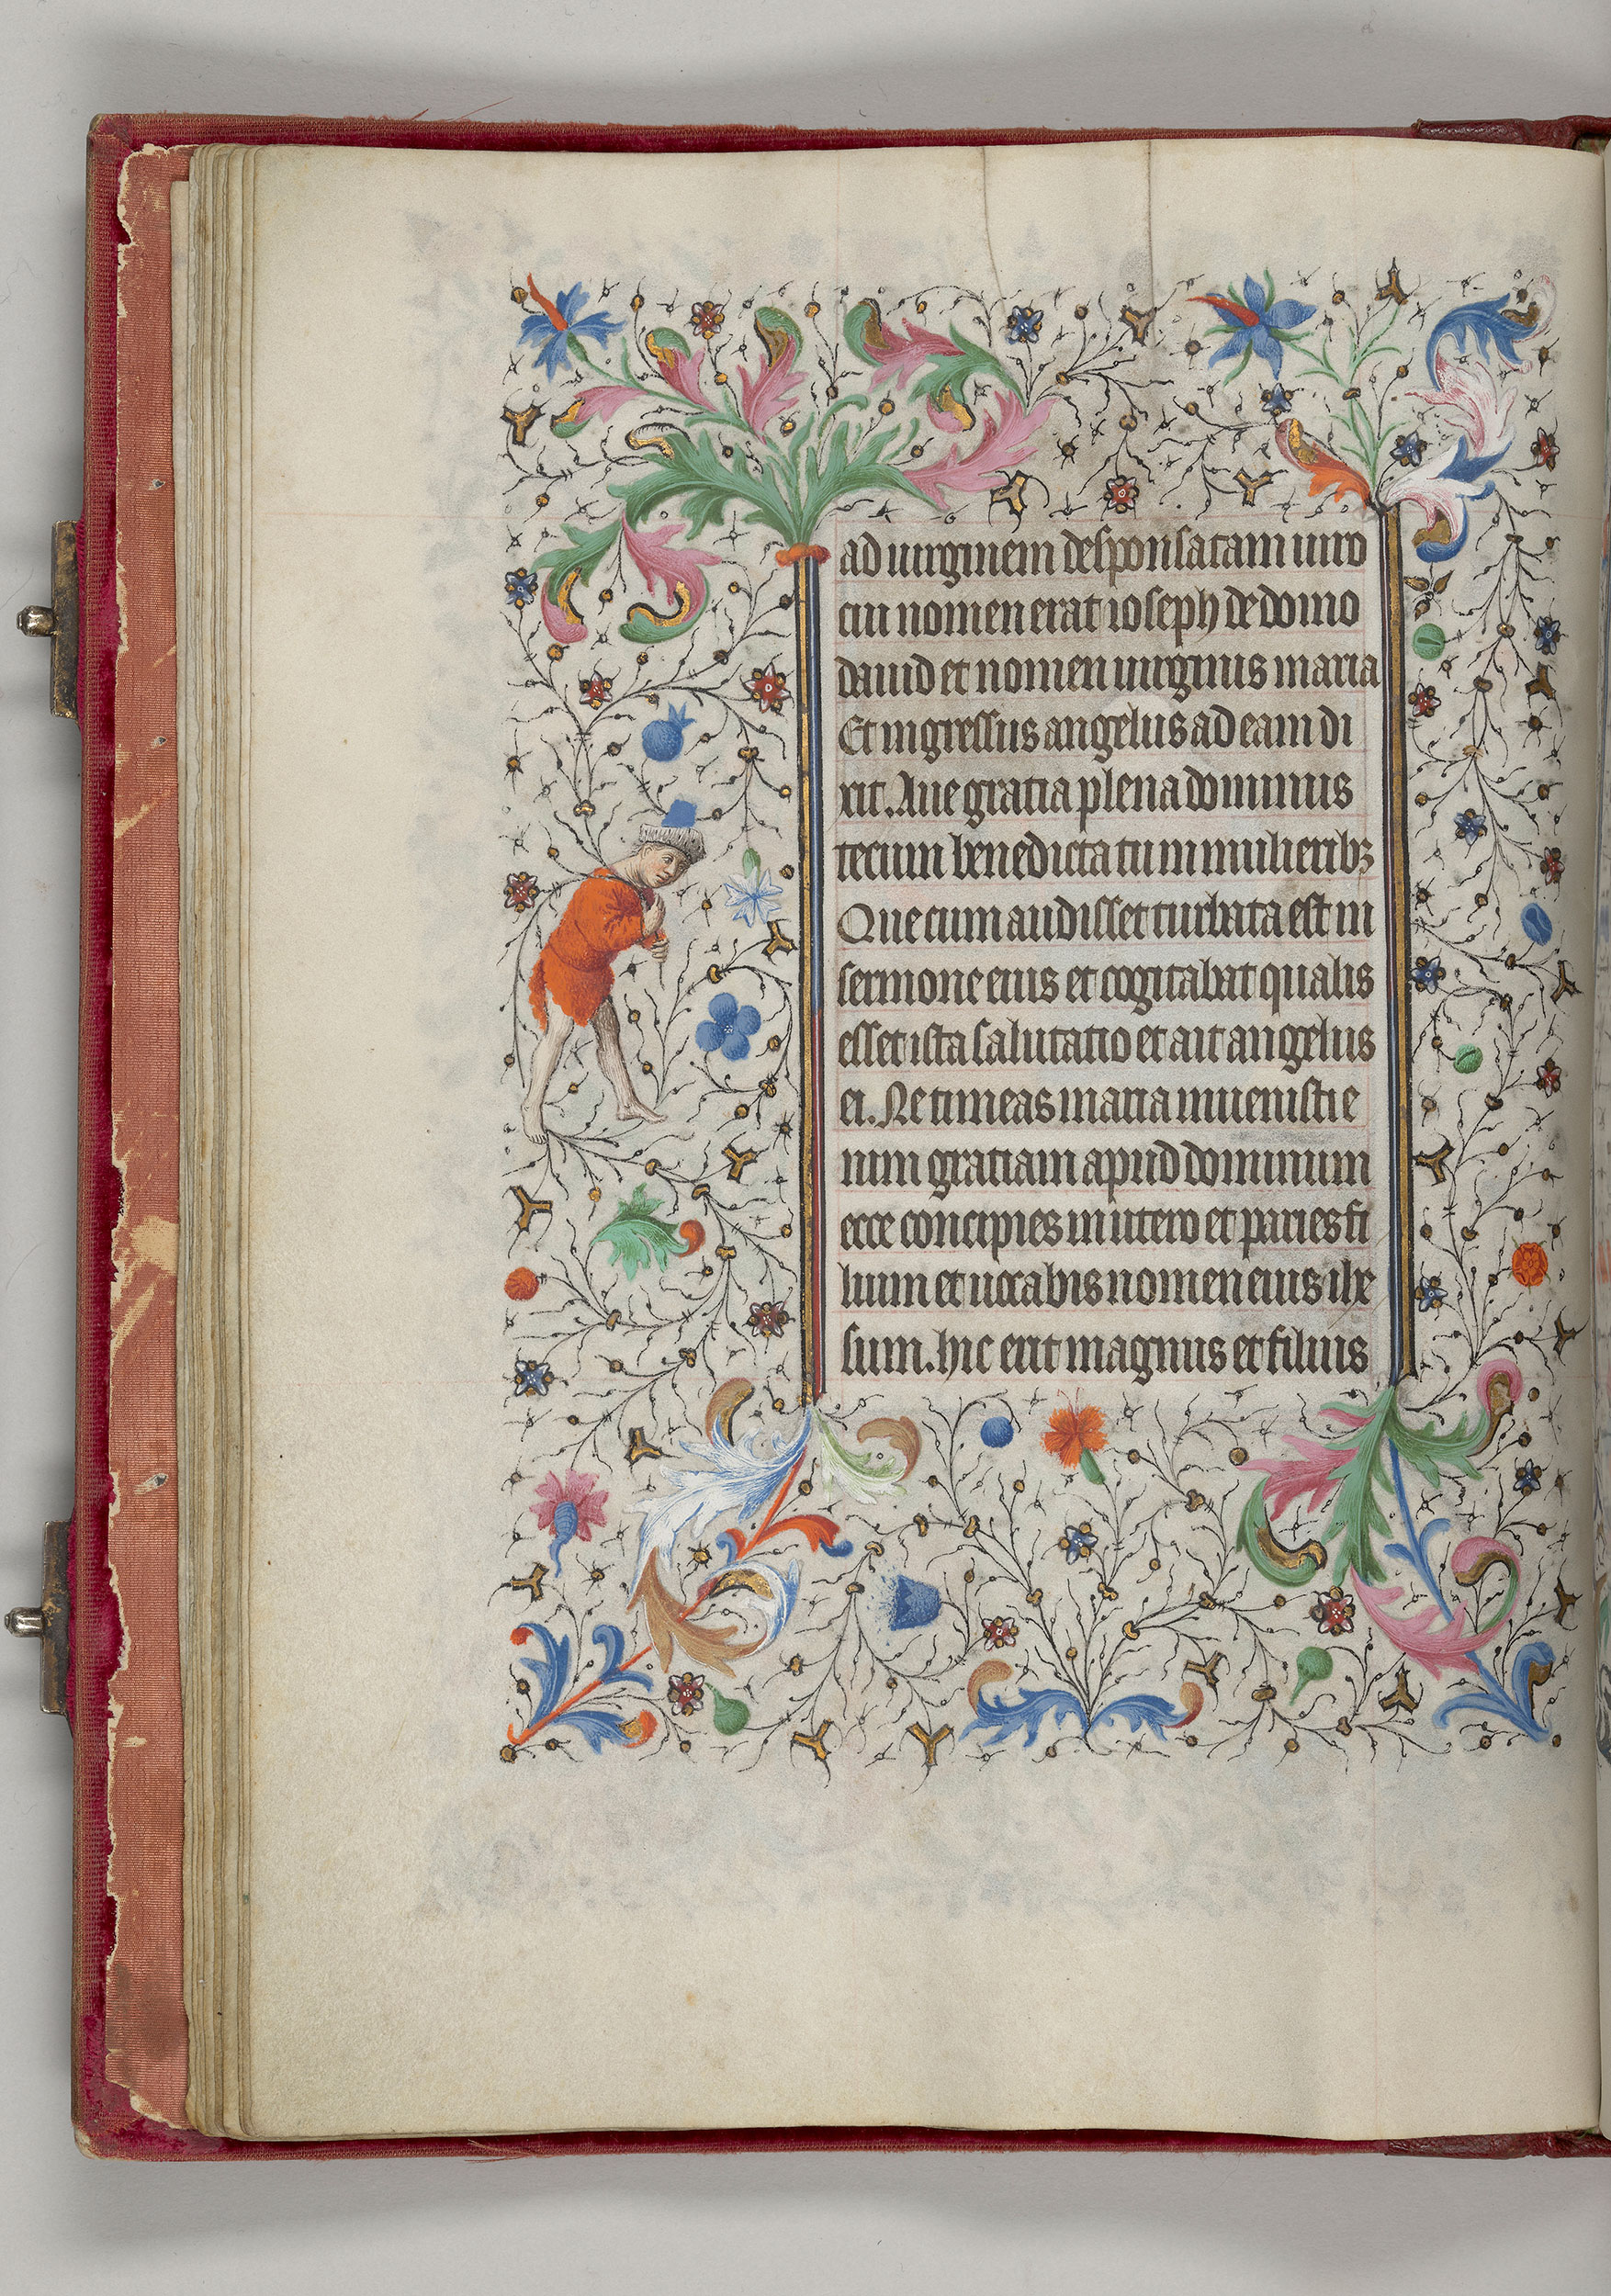 ad uirginem desponsatam uiro
cui nomen erat ioseph de domo
dauid et nomen uirginis maria
Et ingressus angelus ad eam di
xit. Aue gratia plena dominus
tecum benedicta tu in mulieribꝫ
Que cum audisset turbata est in
sermone eius et cogitabat qualis
esset ista salutatio et ait angelus
ei. Ne timeas maria inuenisti e
nim gratiam apud dominum
ecce concipies in utero et paries fi
lium et uocabis nomen eius ihe
sum. hic erit magnus et filius